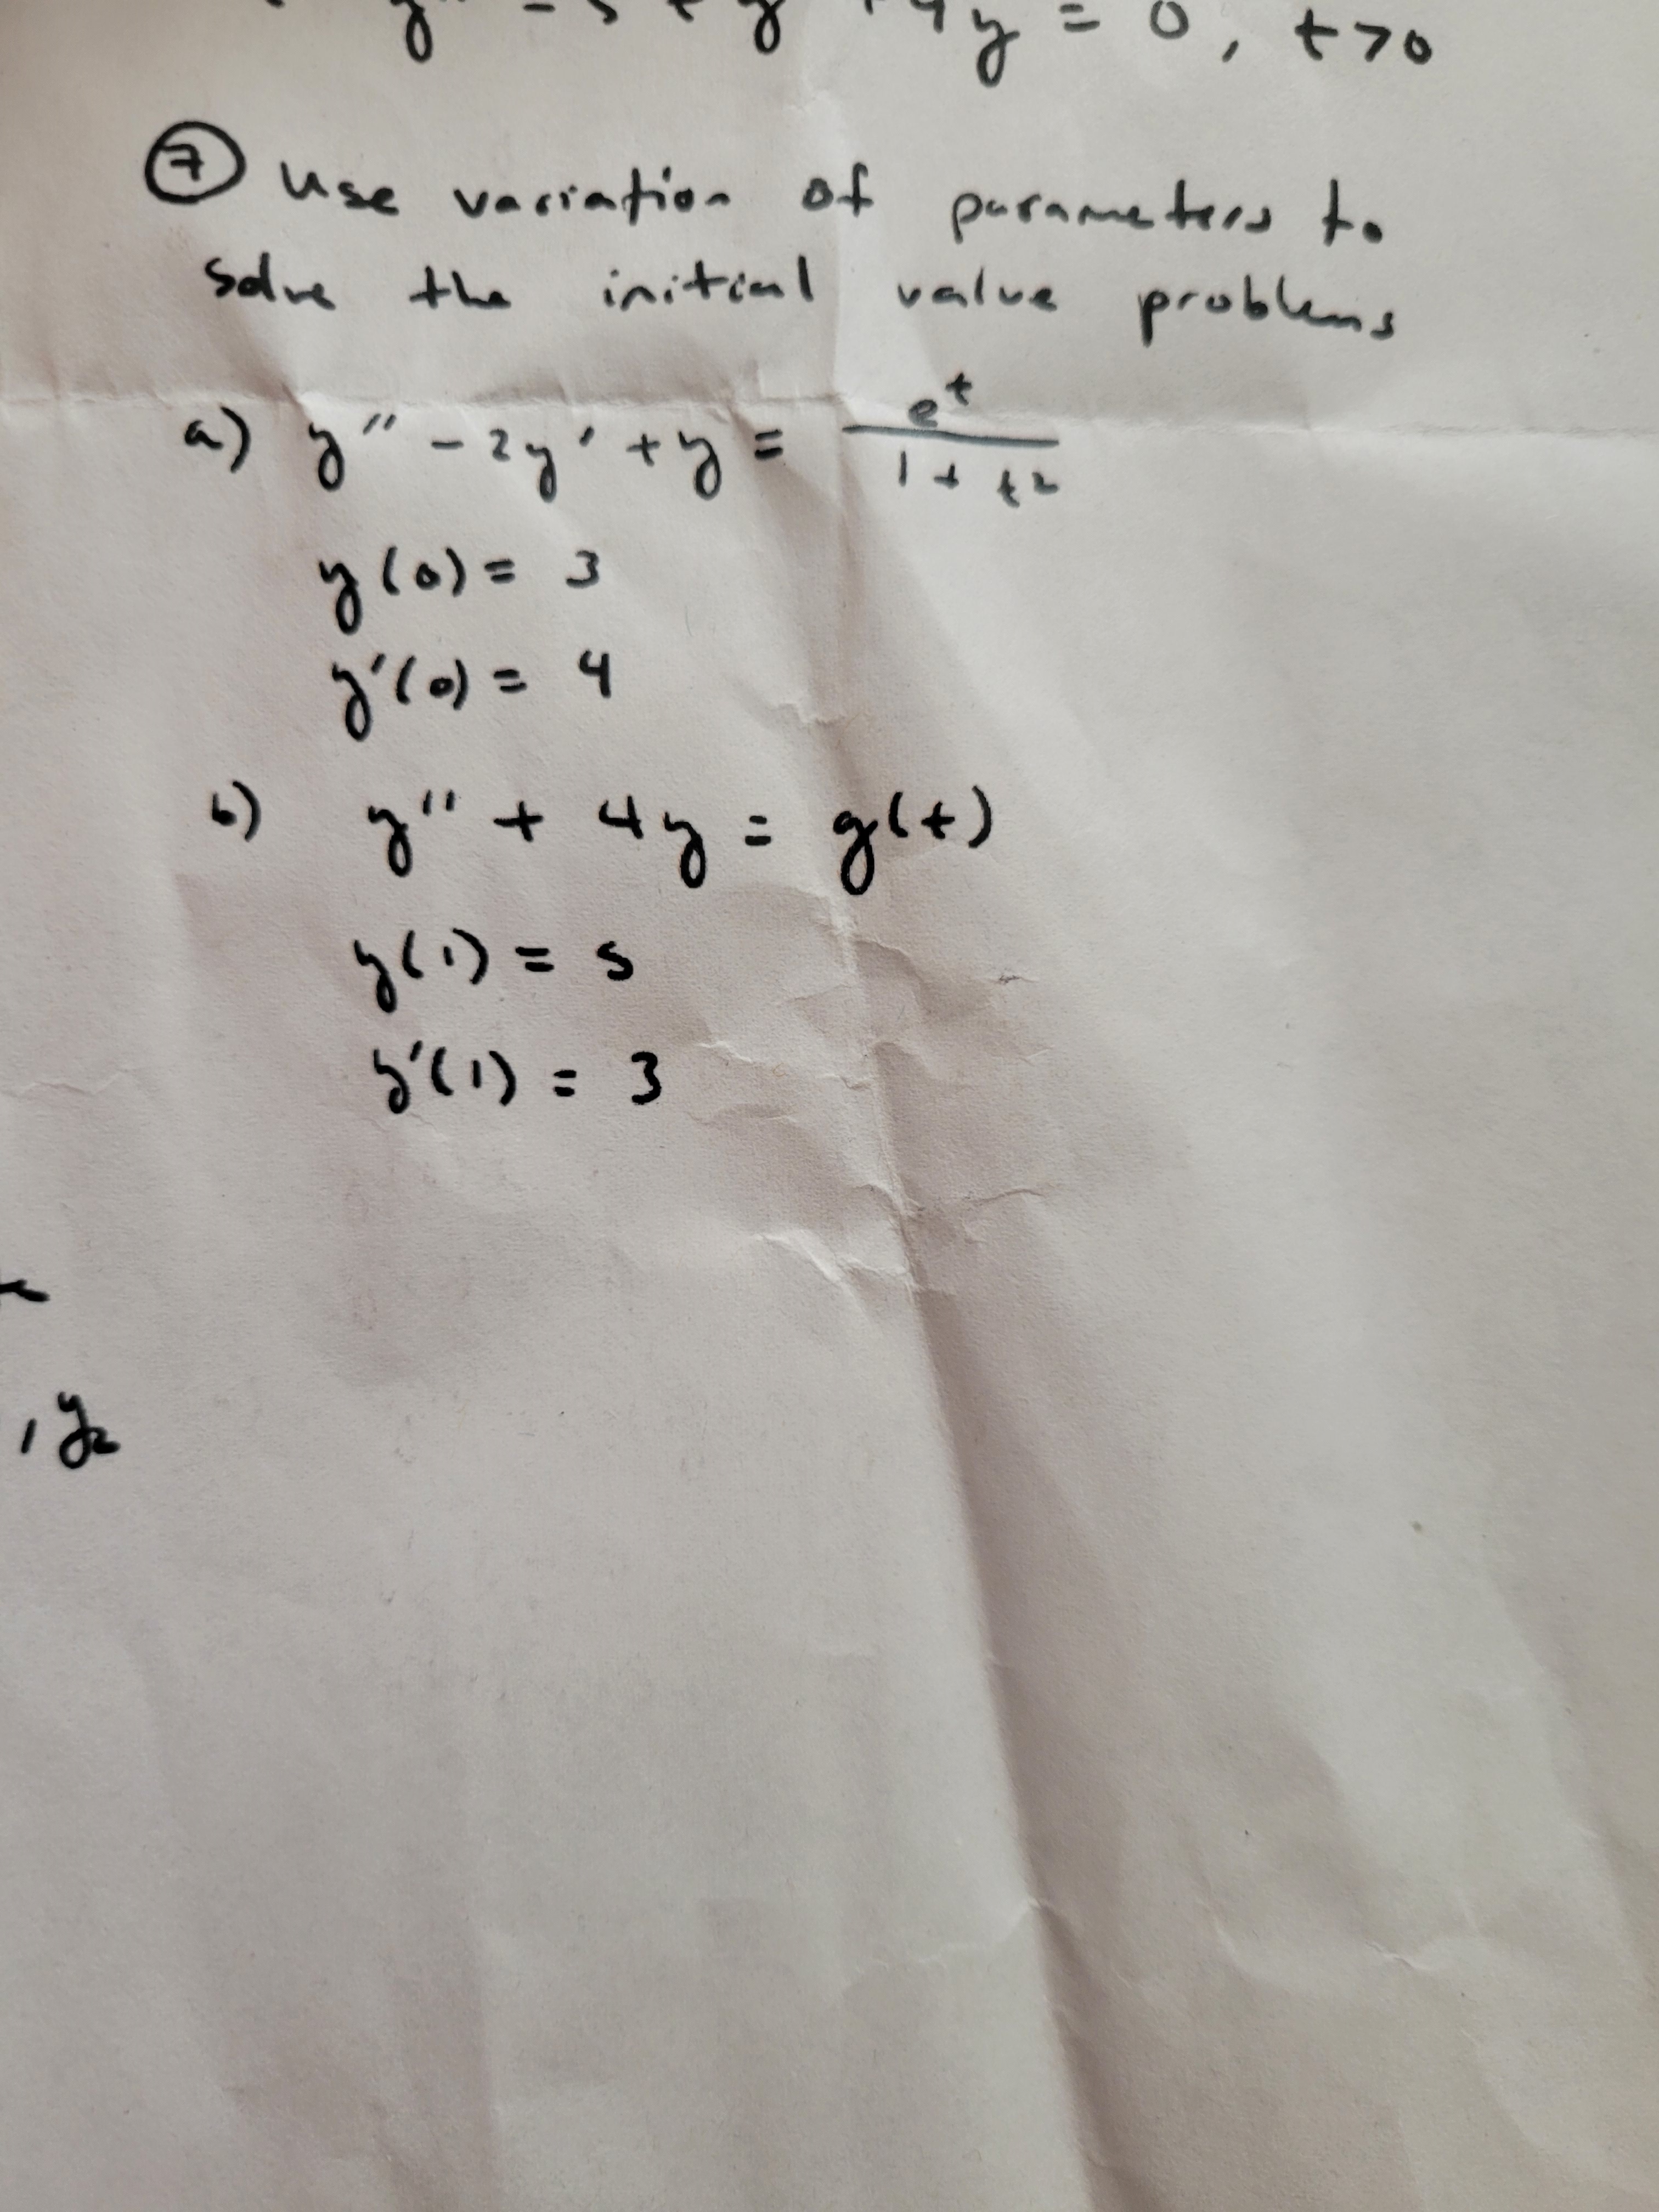 y'' - 5 t y' + 4y = 0, t>0
⑦ Use variation of parameters to
solve the initial value problems
a) y'' - 2y' + y = e^t / (1 + t²)
y(0) = 3
y'(0) = 4
b) y'' + 4y = g(t)
y(1) = 5
y'(1) = 3
, y₂